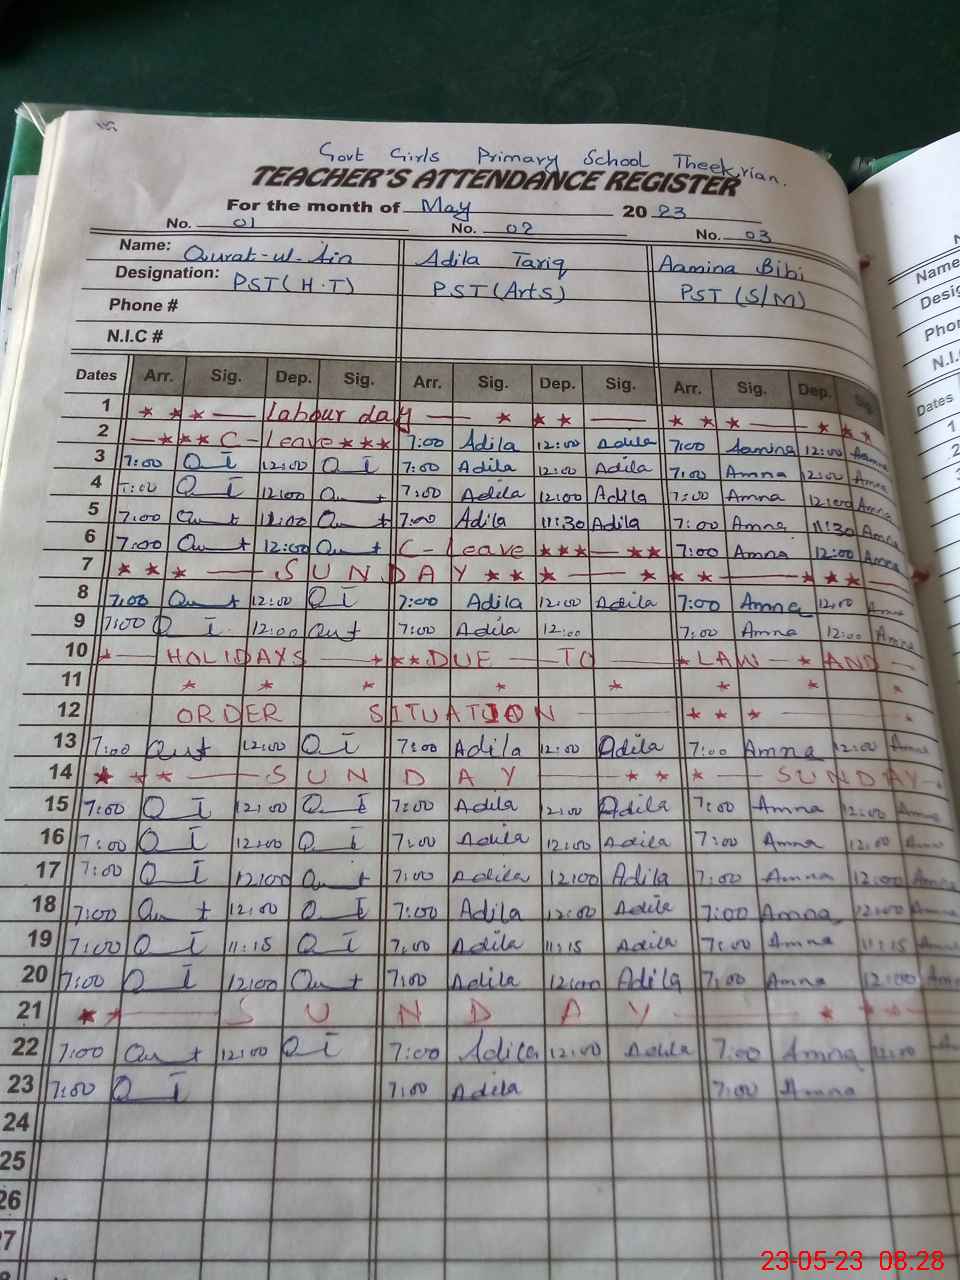 Govt Girls Primary School Theekrian.
TEACHER'S ATTENDANCE REGISTER
For the month of May 2023
No. 01 No. 02 No. 03
Name: Qurat-ul-Ain Adila Tariq Aamina Bibi Name
Designation: PST(H.T) PST(Arts) PST (S/M)
Phone #
N.I.C #
Dates Arr. Sig. Dep. Sig. Arr. Sig. Dep. Sig. Arr. Sig. Dep. Dates
1 * * * — labour day — * * * — * * * — * * *
2 — * * * C-Leave * * * 7:00 Adila 12:00 Adila 7:00 Aamina 12:00 Aamna
3 7:00 QI 12:00 QI 7:00 Adila 12:00 Adila 7:00 Amna 12:00 Amna
4 7:00 QI 12:00 Qut 7:00 Adila 12:00 Adila 7:00 Amna 12:00 Amna
5 7:00 Qut 12:00 Qut 7:00 Adila 11:30 Adila 7:00 Amna 11:30 Amna
6 7:00 Qut 12:00 Qut C-Leave * * * — * * 7:00 Amna 12:00 Amna
7 * * * — SUNDAY * * * — * * * — * * * —
8 7:00 Qut 12:00 QI 7:00 Adila 12:00 Adila 7:00 Amna 12:00 Amna
9 7:00 QI 12:00 Qut 7:00 Adila 12:00 7:00 Amna 12:00 Amna
10 * — HOLIDAYS — * * * DUE — TO — * LAW — * AND —
11 * * * * * * * *
12 ORDER SITUATION — * * * — *
13 7:00 Qut 12:00 QI 7:00 Adila 12:00 Adila 7:00 Amna 12:00 Amna
14 * * * — SUNDAY — * * * — SUNDAY
15 7:00 QI 12:00 QI 7:00 Adila 12:00 Adila 7:00 Amna 12:00 Amna
16 7:00 QI 12:00 QI 7:00 Adila 12:00 Adila 7:00 Amna 12:00 Amna
17 7:00 QI 12:00 Qut 7:00 Adila 12:00 Adila 7:00 Amna 12:00 Amna
18 7:00 Qut 12:00 QI 7:00 Adila 12:00 Adila 7:00 Amna 12:00 Amna
19 7:00 QI 11:15 QI 7:00 Adila 11:15 Adila 7:00 Amna 11:15 Amna
20 7:00 QI 12:00 Qut 7:00 Adila 12:00 Adila 7:00 Amna 12:00 Amna
21 * * — SUNDAY — * * * —
22 7:00 Qut 12:00 QI 7:00 Adila 12:00 Adila 7:00 Amna 12:00
23 7:00 QI 7:00 Adila 7:00 Amna
24
25
26
23-05-23 08.28